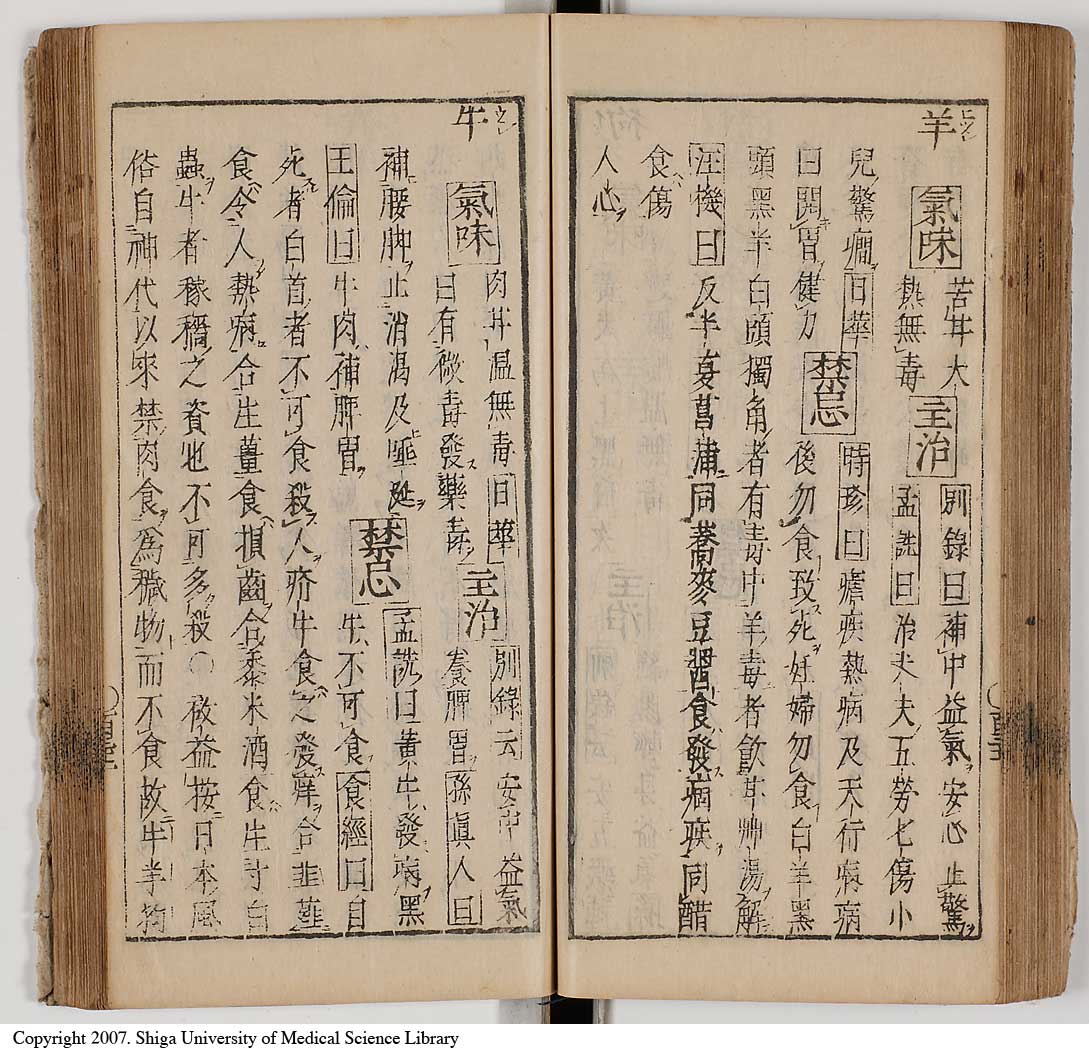 羊
氣味 苦甘大
熱無毒 主治 別錄曰補中益氣安心止驚
孟詵曰治丈夫五勞七傷小
兒驚癇日華
曰開胃健力 禁忌 時珍曰瘧疾熱病及天行病病
後勿食致死妊婦勿食白羊黑
頭黑羊白頭獨角者有毒中羊毒者飲甘艸湯解
汪機曰反半夏菖蒲同蕎麥豆醬食發病疾同醋
食傷
人心
牛
氣味 肉甘溫無毒日華
曰有微毒發藥毒 主治 別錄云安中益氣
養脾胃孫眞人曰
補腰脚止消渴及唾涎 禁忌 孟詵曰黃牛發病黑
牛不可食食經曰自
王倫曰牛肉補脾胃
死者白首者不可食殺人疥牛食之發痒合韭薤
食令人熱病合生薑食損齒合黍米酒食生寸白
蟲牛者稼穡之資也不可多殺〇
按日本風
俗自神代以來禁肉食爲穢物而不食故牛羊狗
Copyright 2007. Shiga University of Medical Science Library